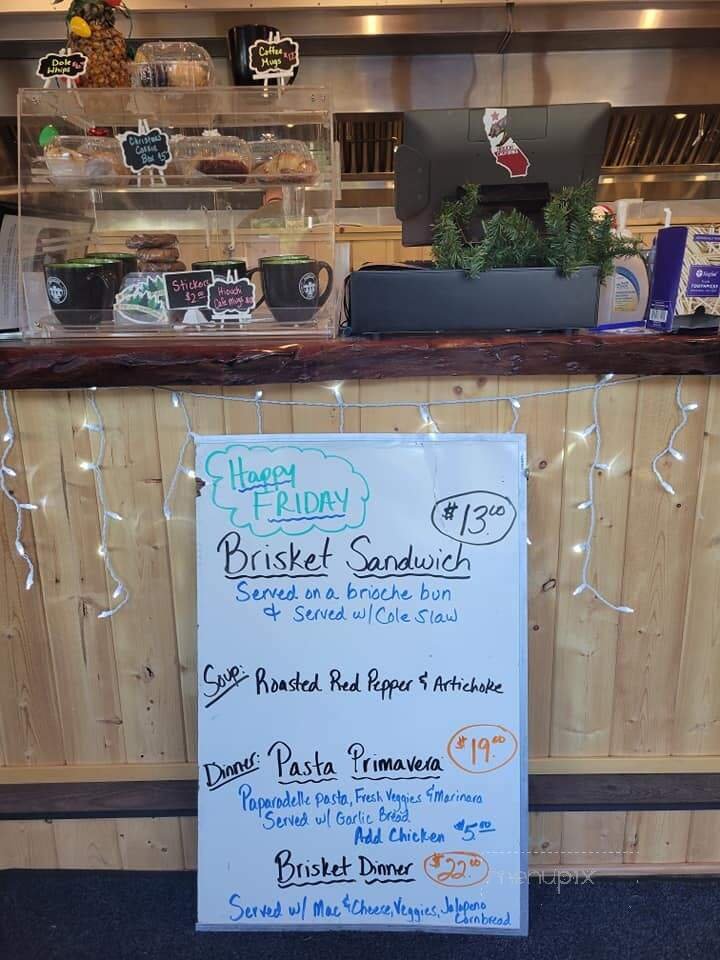 Dole
Whips
Coffee
Mugs
Christmas
Cookie
Box
Stickers
$2.00
Hiouchi
Cafe Mugs
Happy
FRIDAY
$13.00
Brisket Sandwich
Served on a brioche bun
& Served w/ Cole Slaw
Soup: Roasted Red Pepper & Artichoke
Dinner: Pasta Primavera $19.00
Paparadelle pasta, Fresh Veggies & Marinara
Served w/ Garlic Bread
Add Chicken $5.00
Brisket Dinner $22.00
Served w/ Mac & Cheese, Veggies, Jalapeno
Cornbread
menupix